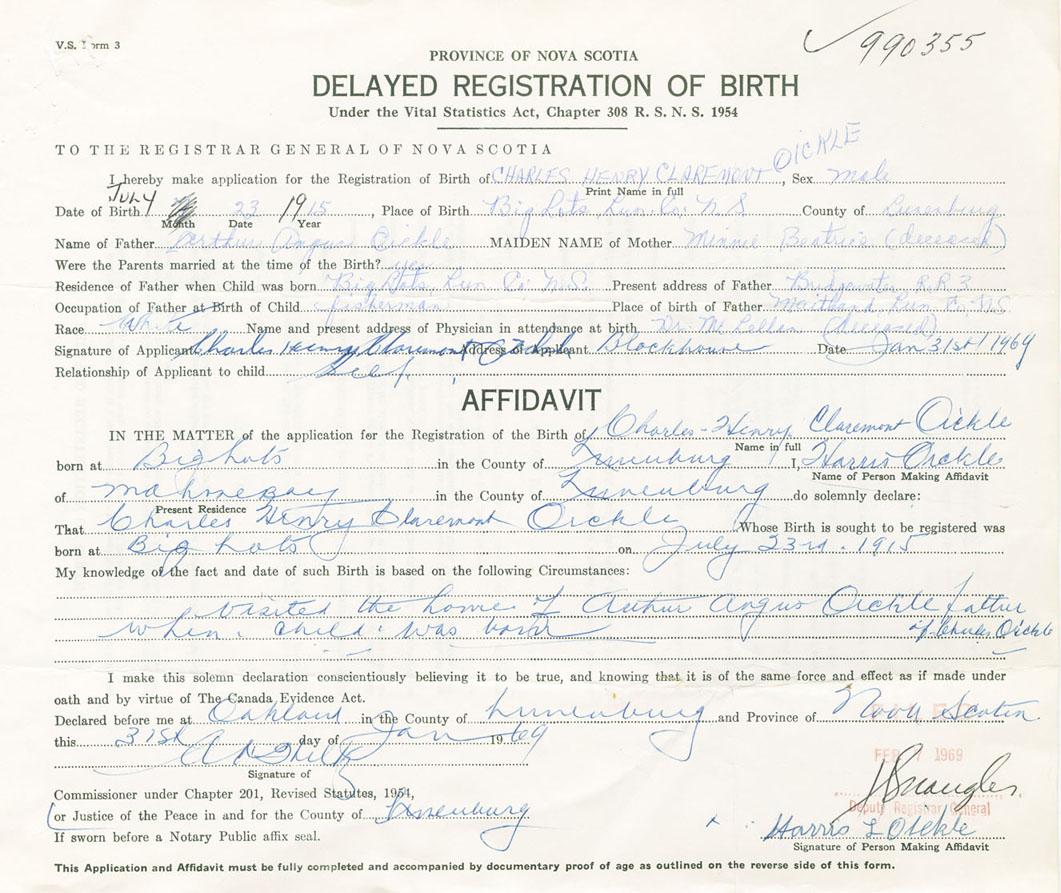 V.S. Form 3
990355
PROVINCE OF NOVA SCOTIA
DELAYED REGISTRATION OF BIRTH
Under the Vital Statistics Act, Chapter 308 R. S. N. S. 1954
TO THE REGISTRAR GENERAL OF NOVA SCOTIA
I hereby make application for the Registration of Birth of CHARLES HENRY CLAREMONT OICKLE, Sex Male
Print Name in full
Date of Birth JULY 23 1915, Place of Birth Big Lots, Lun. Co. N.S County of Lunenburg
Month Date Year
Name of Father Arthur Angus Oickle MAIDEN NAME of Mother Minnie Beatrice (deceased)
Were the Parents married at the time of the Birth? yes
Residence of Father when Child was born Big Lots, Lun. Co. N.S. Present address of Father Bridgewater R.R.3
Occupation of Father at Birth of Child fisherman Place of birth of Father Maitland Lun. Co. N.S.
Race White Name and present address of Physician in attendance at birth Dr. McLellan (deceased)
Signature of Applicant Charles Henry Claremont Oickle Address of Applicant Blockhouse Date Jan 31st/1969
Relationship of Applicant to child Self
AFFIDAVIT
IN THE MATTER of the application for the Registration of the Birth of Charles-Henry Claremont Oickle
Name in full
born at Big Lots in the County of Lunenburg I, Harris Oickle
Name of Person Making Affidavit
of Mahone Bay in the County of Lunenburg do solemnly declare:
Present Residence
That Charles Henry Claremont Oickle Whose Birth is sought to be registered was
born at Big Lots on July 23rd. 1915
My knowledge of the fact and date of such Birth is based on the following Circumstances:
Visited the home of Arthur Angus Oickle father
when child was born of Charles Oickle
I make this solemn declaration conscientiously believing it to be true, and knowing that it is of the same force and effect as if made under
oath and by virtue of The Canada Evidence Act.
Declared before me at Oakland in the County of Lunenburg and Province of Nova Scotia
this 31st day of Jan 1969
FEB 7 1969
Signature of
Commissioner under Chapter 201, Revised Statutes, 1954,
Deputy Registrar General
or Justice of the Peace in and for the County of Lunenburg
Harris L Oickle
If sworn before a Notary Public affix seal.
Signature of Person Making Affidavit
This Application and Affidavit must be fully completed and accompanied by documentary proof of age as outlined on the reverse side of this form.